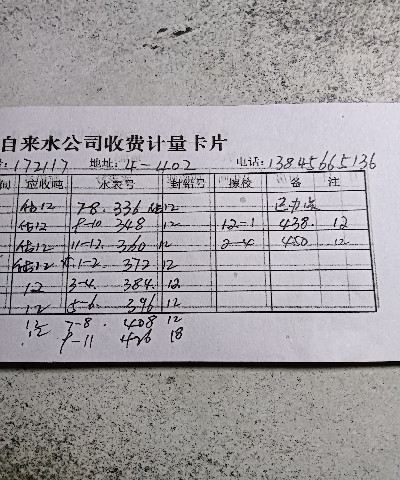 自来水公司收费计量卡片
:172117 地址: 4-402 电话: 13845665136
间 应收吨 水表号 封铅号 换校 备 注
估12 7-8. 336 估12
估12 9-10 348 12 12-1 438. 12
估12 11-12. 360 12 2-4 450 12
估12 1-2. 372 12
12 3-4. 384. 12
12 5-6. 396 12
12 7-8. 408 12
9-11 426 18